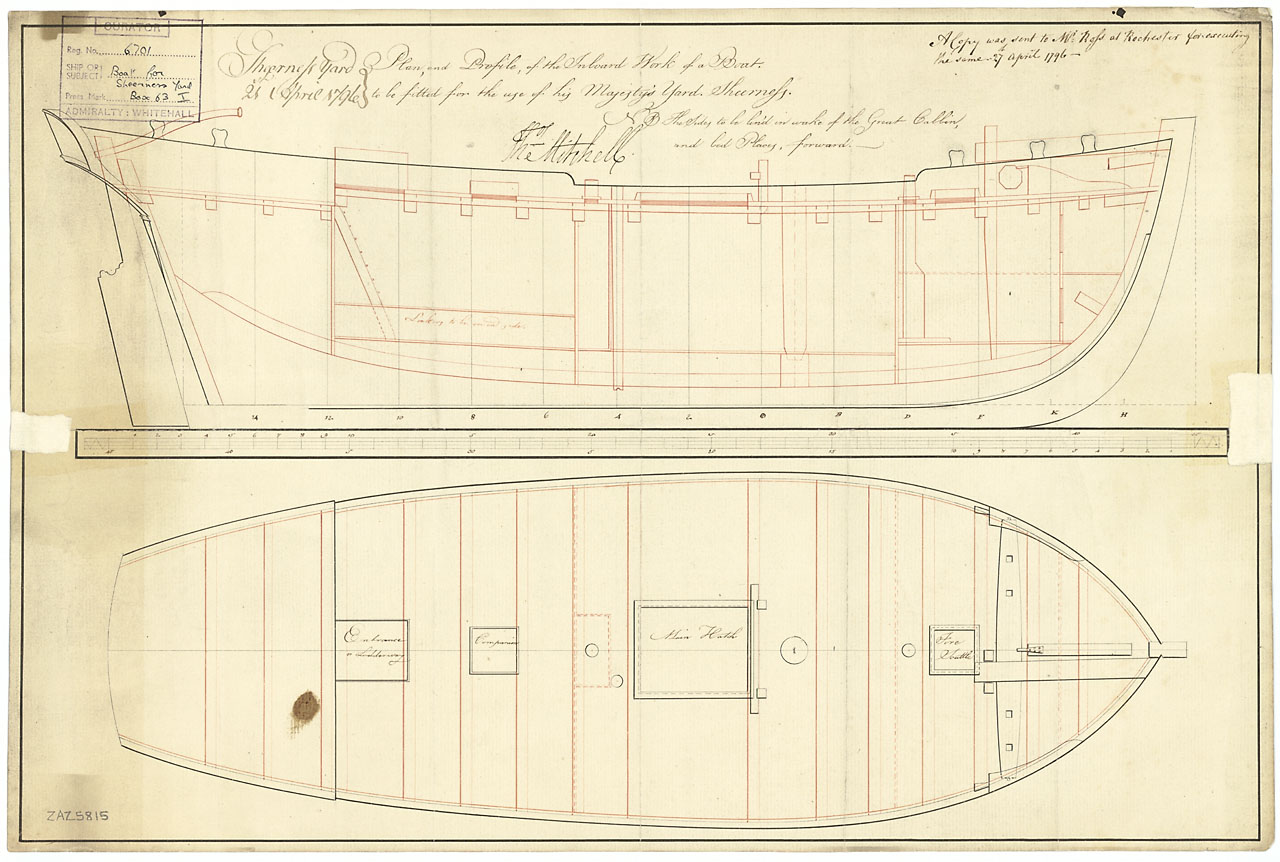 CURATOR
Reg. No. 6701
SHIP OR SUBJECT: Boat for Sheerness Yard
Press Mark Box 63 I
ADMIRALTY: WHITEHALL
Sheerness Yard
21 April 1796
Plan, and Profile, of the Inboard Work of a Boat,
to be fitted for the use of his Majesty's Yard Sheerness.
NB The Sides to be lin'd in wake of the Great Cabbin,
and bed Places, forward.
Thos Mitchell
A Copy was sent to Mr. Ross at Rochester for executing
the same 27 April 1796
14 12 10 8 6 4 2 B D F K H
Entrance
or Ladderway
Companion
Main Hatch
Fore
Scuttle
ZAZ5815